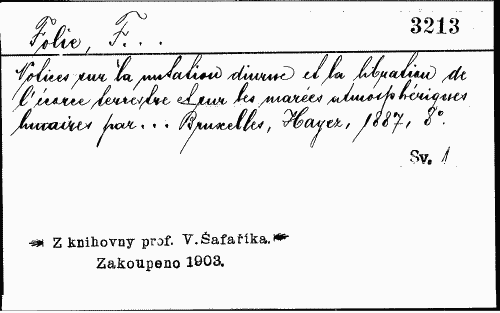 Folie, F...
3213
Notices sur la nutation diurne et la libration de
l'écorce terrestre et sur les marées atmosphériques
lunaires par... Bruxelles, Hayez, 1887, 8°.
Sv. 1
Z knihovny prof. V. Šafaříka.
Zakoupeno 1903.